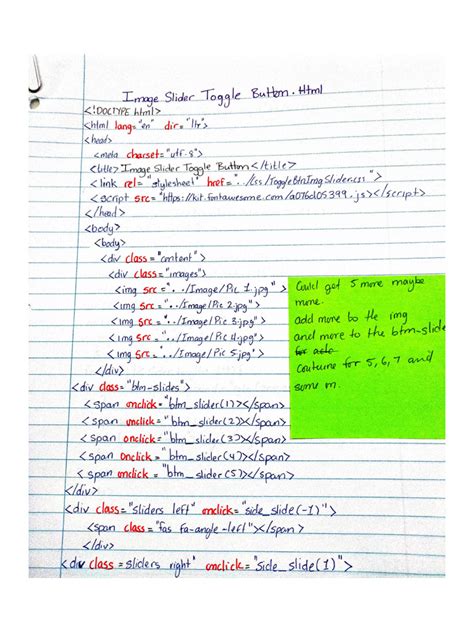 Image Slider Toggle Button.Html
<!DOCTYPE html>
<html lang="en" dir="ltr">
<head>
<meta charset="utf-8">
<title>Image Slider Toggle Button</title>
<link rel="stylesheet" href="../css/ToggleBtnImgSlider.css">
<script src="https://kit.fontawesome.com/a076d05399.js></script>
</head>
<body>
<body>
<div class="content">
<div class="images">
<img src="../Image/Pic 1.jpg">
<img src="../Image/Pic 2.jpg">
<img src="../Image/Pic 3.jpg">
<img src="../Image/Pic 4.jpg">
<img src="../Image/Pic 5.jpg">
</div>
<div class="btm-slides">
<span onclick="btm_slider(1)></span>
<span onclick="btm_slider(2)></span>
<span onclick="btm_slider(3)></span>
<span onclick="btm_slider(4)></span>
<span onclick="btm_slider(5)></span>
</div>
<div class="sliders left" onclick="side_slide(-1)">
<span class="fas fa-angle-left"></span>
</div>
<div class=sliders right" onclick="side_slide(1)">
Could get 5 more maybe
more.
add more to the img
and more to the btm-slide
Continue for 5, 6, 7 and
some m.